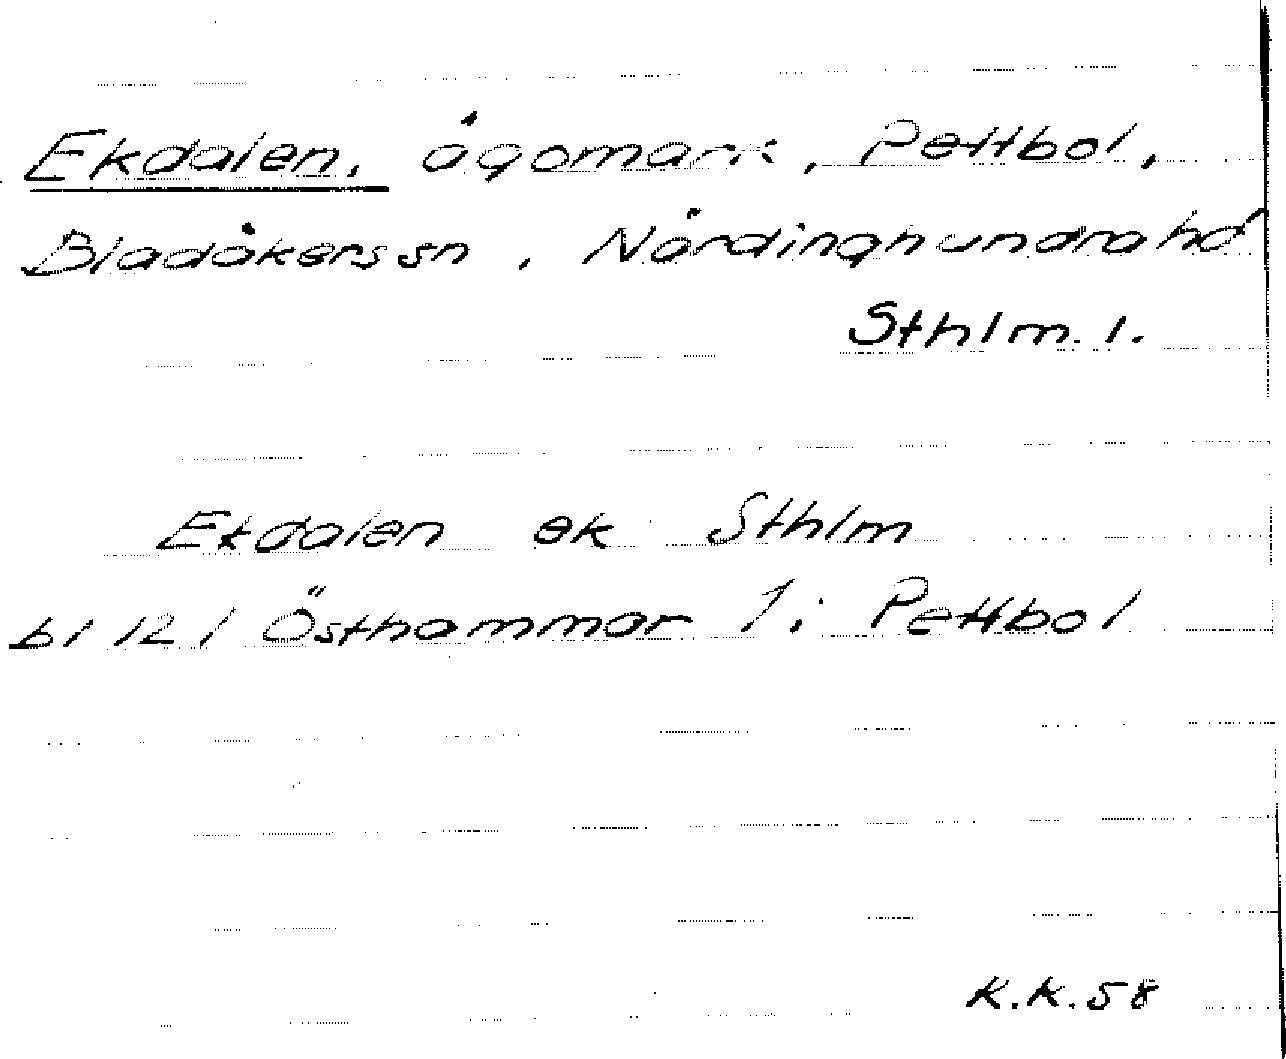 Ekdalen, ägomark, Pettbol,
Bladåkers sn, Närdinghundra hd
Sthlm. l.
Ekdalen ek Sthlm
bl 121 Östhammar 1; Pettbol
K.K. 58